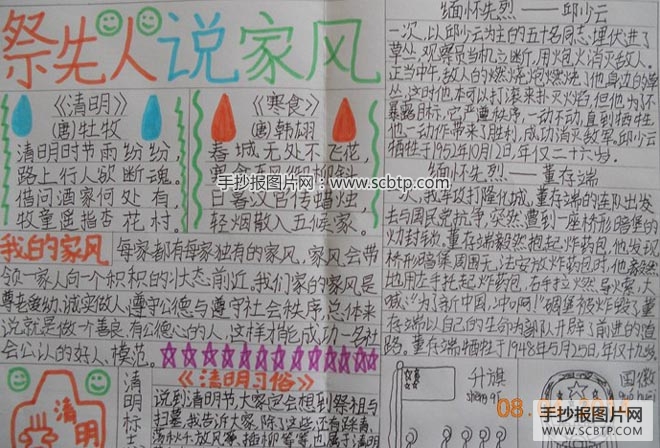 祭先人说家风
《清明》
(唐)牡牧
清明时节雨纷纷，
路上行人欲断魂。
借问酒家何处有，
牧童遥指杏花村。
《寒食》
(唐)韩翃
春城无处不飞花，
日暮汉宫传蜡烛，
轻烟散入五候家。
我的家风
每家都有每家独有的家风，家风会带
领一家人向一个积积的状态前近。我们家的家风是
尊老爱幼，诚实做人，遵守公德与遵守社会秩序，总体来
说就是做一个善良有公德心的人，这样才能成功一名社
会公认的好人、模范。
清明
清明标志
《清明习俗》
说到清明节大家定会想到祭祖与
扫墓，我告诉大家，除了这些，还有踏青、
荡秋千、放风筝、插柳等等也属于清明
缅怀先烈——邱少云
一次，以邱少云为主的五十名同志，埋伏进了
草丛，观察员当机立断，用炮火消灭敌人。
正当中午，敌人的燃烧炮燃烧了他身边的草
丛，这时他本可以打滚来扑灭火焰，但他为不
暴露目标，它严遵秩序，一动不动，直到牺牲
他一动作带来了胜利，成功消灭敌军。邱少云
牺牲于1952年10月12日，年仅二十六岁。
缅怀先烈——董存瑞
一次，我军攻打隆化城，董存瑞的连队出发
去与国民党抗争，突然遭到一座桥形暗堡的火
力封锁。董存瑞毅然抱起炸药包，他发现
桥形暗堡周围无法安放炸药包时，他毅然
地用左手托起炸药包，右手拉燃导火索，大
喊：“为了新中国，冲啊！”碉堡被炸毁了，董
存瑞以自己的生命为部队开辟了前进的道
路。董存瑞牺牲于1948年5月25日，年仅十九岁。
升旗
shēng qí
国徽
08.04
手抄报图片网：www.scbtp.com
手抄报图片网
www.scbtp.com